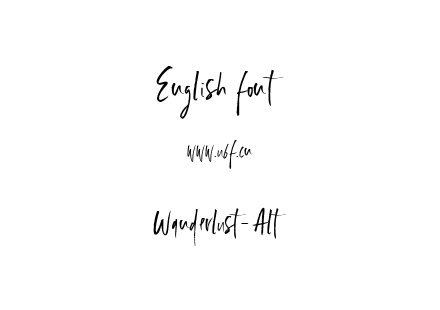 English font
www.ubf.cn
Wanderlust-Alt